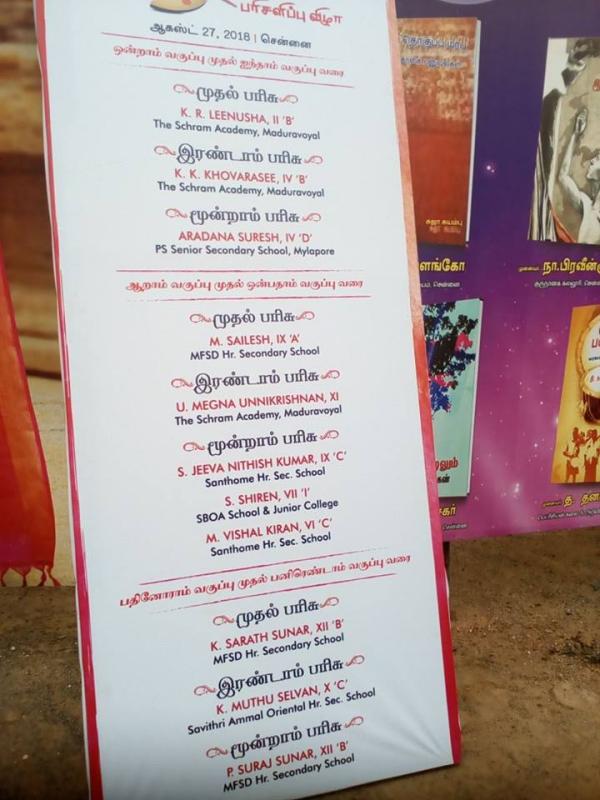 பரிசளிப்பு விழா
ஆகஸ்ட் 27, 2018 | சென்னை
ஒன்றாம் வகுப்பு முதல் ஐந்தாம் வகுப்பு வரை
முதல் பரிசு
K. R. LEENUSHA, II 'B'
The Schram Academy, Maduravoyal
இரண்டாம் பரிசு
K. K. KHOVARASEE, IV 'B'
The Schram Academy, Maduravoyal
மூன்றாம் பரிசு
ARADANA SURESH, IV 'D'
PS Senior Secondary School, Mylapore
ஆறாம் வகுப்பு முதல் ஒன்பதாம் வகுப்பு வரை
முதல் பரிசு
M. SAILESH, IX 'A'
MFSD Hr. Secondary School
இரண்டாம் பரிசு
U. MEGNA UNNIKRISHNAN, XI
The Schram Academy, Maduravoyal
மூன்றாம் பரிசு
S. JEEVA NITHISH KUMAR, IX 'C'
Santhome Hr. Sec. School
S. SHIREN, VII 'I'
SBOA School & Junior College
M. VISHAL KIRAN, VI 'C'
Santhome Hr. Sec. School
பதினோராம் வகுப்பு முதல் பனிரெண்டாம் வகுப்பு வரை
முதல் பரிசு
K. SARATH SUNAR, XII 'B'
MFSD Hr. Secondary School
இரண்டாம் பரிசு
K. MUTHU SELVAN, X 'C'
Savithri Ammal Oriental Hr. Sec. School
மூன்றாம் பரிசு
P. SURAJ SUNAR, XII 'B'
MFSD Hr. Secondary School
சுஜா சுயம்பு
ளங்கோ
சென்னை
முனைவர் நா.பிரவீன்
குருநானக் கல்லூரி, சென்னை
கர்
சென்னை
முனைவர்